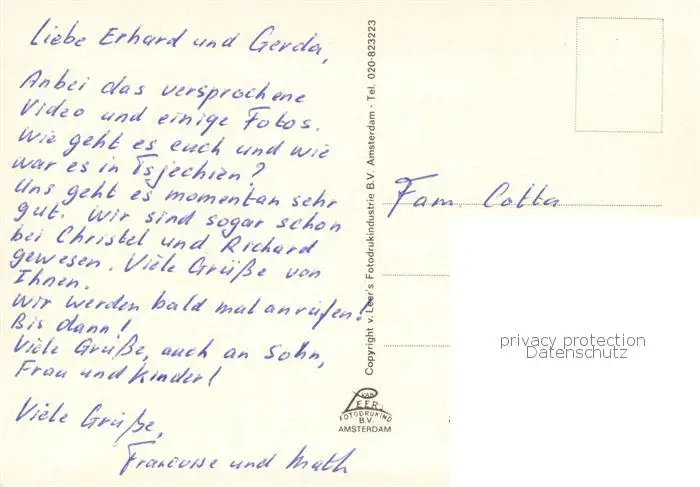 Liebe Erhard und Gerda,
Anbei das versprochene
Video und einige Fotos.
Wie geht es euch und wie
war es in Tsjechien?
Uns geht es momentan sehr
gut. Wir sind sogar schon
bei Christel und Richard
gewesen. Viele Grüße von
Ihnen.
Wir werden bald mal anrufen!
Bis dann!
Viele Grüße, auch an Sohn,
Frau und Kinder!
Viele Grüße,
Francoise und Math
Copyright v. Leer's Fotodrukindustrie B.V. Amsterdam - Tel. 020-823223
VAN
LEER
FOTODRUKIND
B.V.
AMSTERDAM
Fam. Cotta
privacy protection
Datenschutz